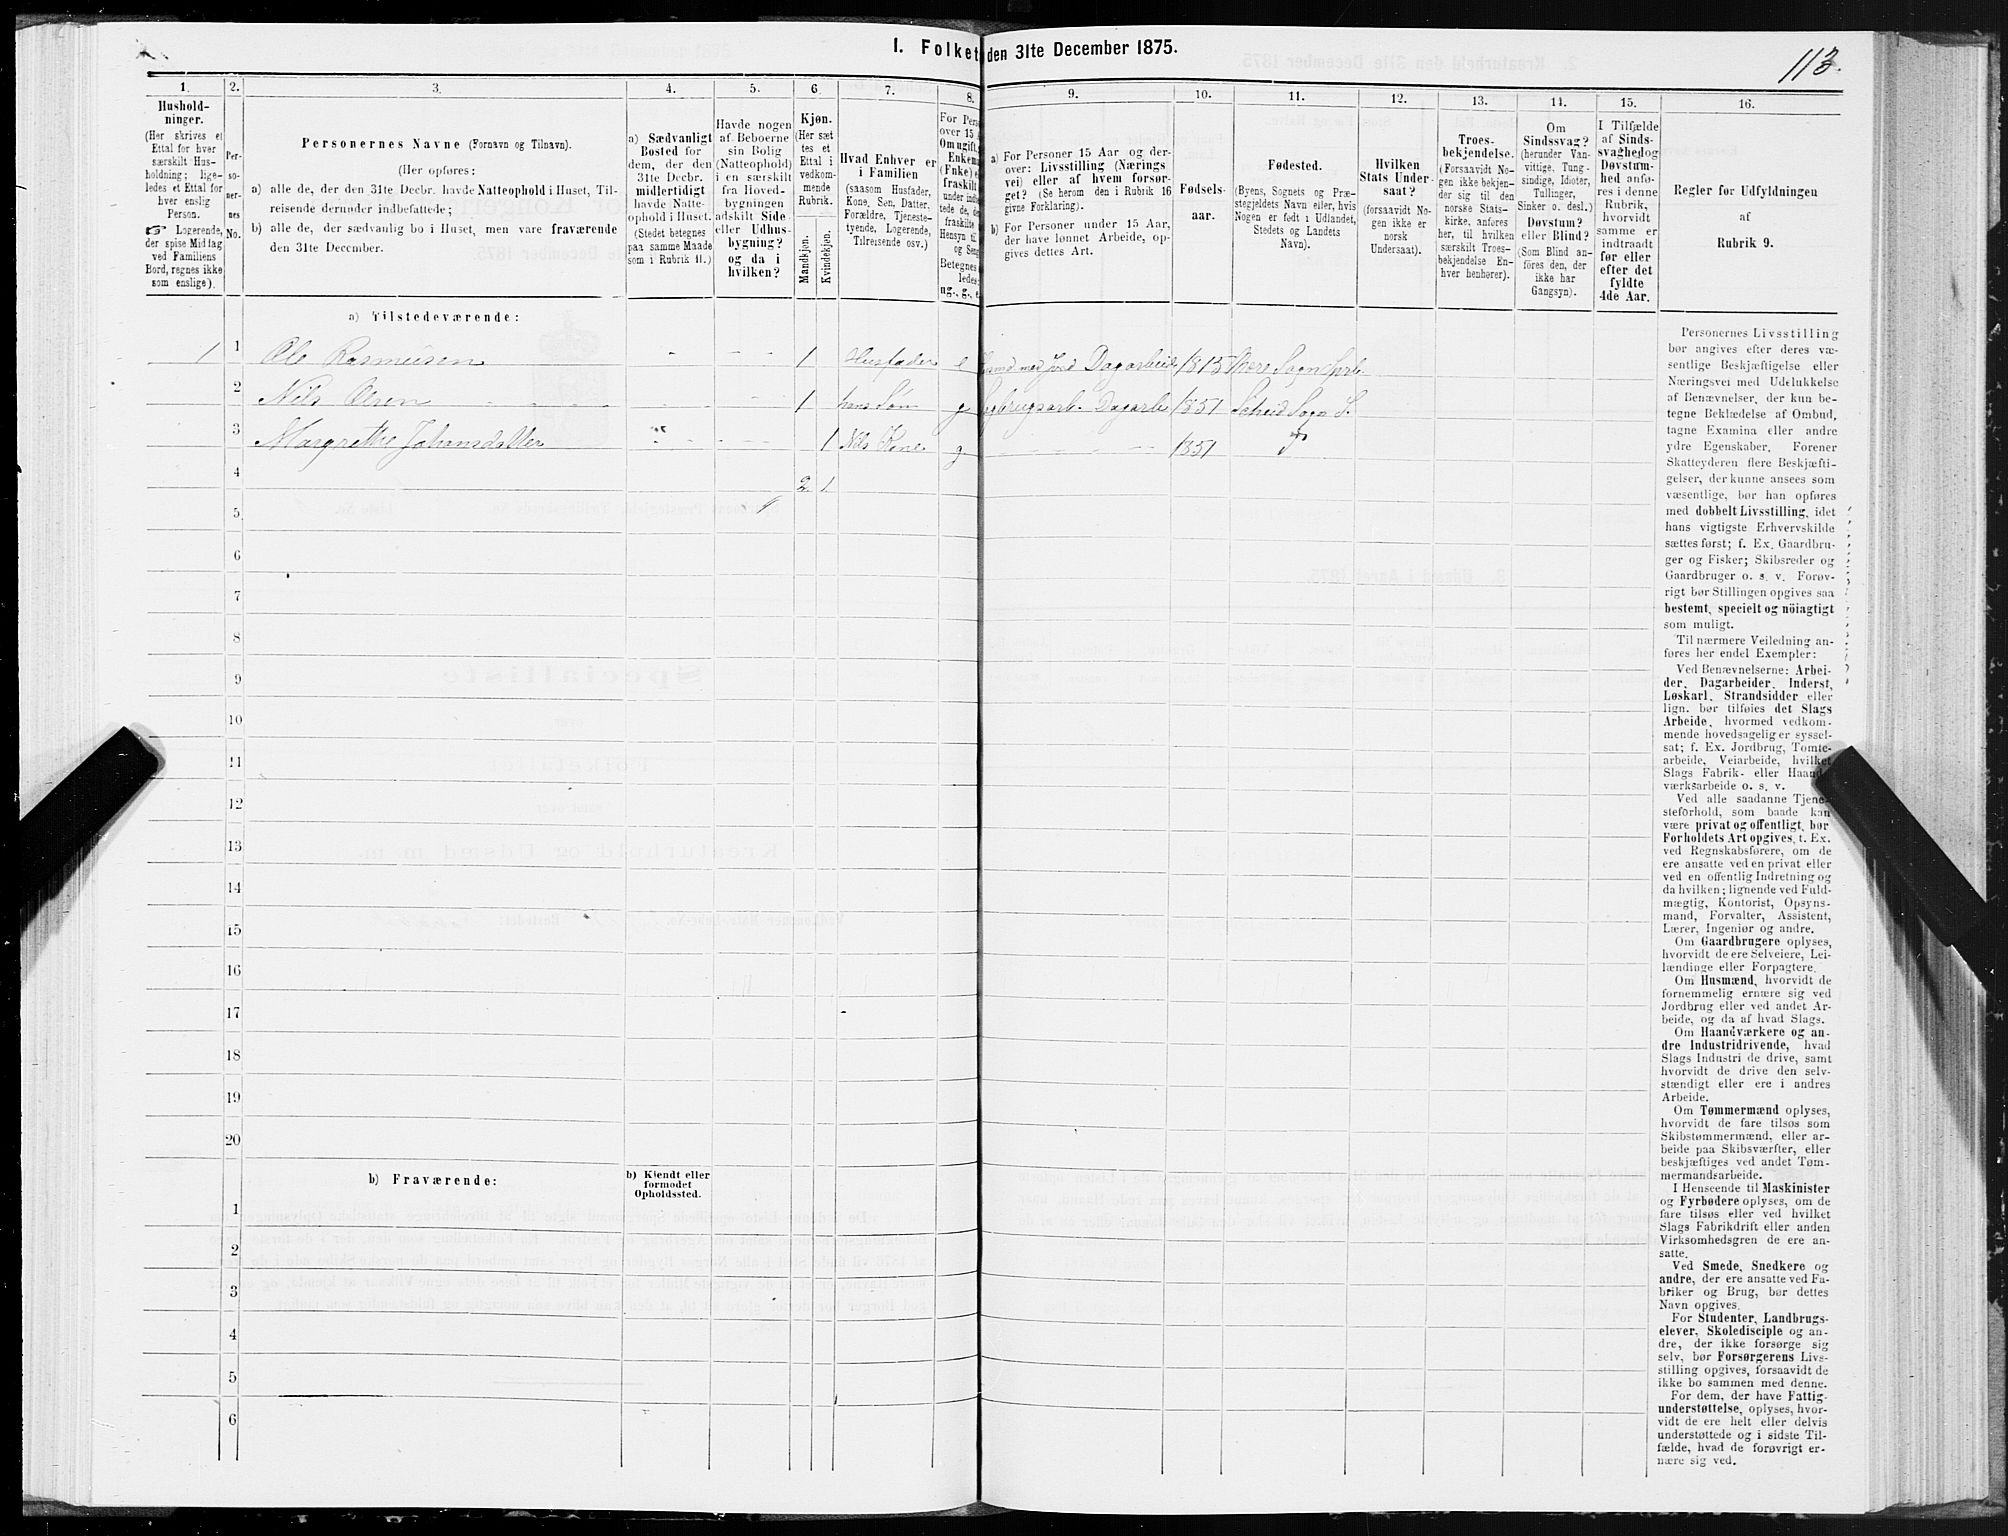 I. Folket den 31te December 1875.
113.
1. 2. 3. 4. 5. 6. 7. 8. 9. 10. 11. 12. 13. 14. 15. 16.
Hushold-
ninger.
(Her skrives et
Ettal for hver
særskilt Hus-
holdning; lige-
ledes et Ettal for
hver enslig
Person.
☞ Logerende,
der spise Middag
ved Familiens
Bord, regnes ikke
som enslige).
Per-
so-
ner-
nes
No.
Personernes Navne (Fornavn og Tilnavn).
(Her opføres:
a) alle de, der den 31te Decbr. havde Natteophold i Huset, Til-
reisende derunder indbefattede;
b) alle de, der sædvanlig bo i Huset, men vare fraværende
den 31te December.
a) Sædvanligt
Bosted for
dem, der den
31te Decbr.
midlertidigt
havde Natte-
ophold i Huset.
(Stedet betegnes
paa samme Maade
som i Rubrik 11.)
Havde nogen
af Beboerne
sin Bolig
(Natteophold)
i en særskilt
fra Hoved-
bygningen
adskilt Side-
eller Udhus-
bygning?
og da i
hvilken?
Kjøn.
(Her sæt-
tes et
Ettal i
vedkom-
mende
Rubrik.
Mandkjøn.
Kvindekjøn.
Hvad Enhver er
i Familien
(saasom Husfader,
Kone, Søn, Datter,
Forældre, Tjeneste-
tyende, Logerende,
Tilreisende osv.)
For Pers
over 15 A
Om ugift,
Enkema
(Fnke) e
fraskilt
under indbe
tede de, de
fraskilte
Hensyn til
og Seng
Betegnes
ledes:
ug., g., e
a) For Personer 15 Aar og der-
over: Livsstilling (Nærings
vei) eller af hvem forsør-
get? (Se herom den i Rubrik 16
givne Forklaring).
b) For Personer under 15 Aar,
der have lønnet Arbeide, op-
gives dettes Art.
Fødsels-
aar.
Fødested.
(Byens, Sognets og Præ-
stegjeldets Navn eller, hvis
Nogen er født i Udlandet,
Stedets og Landets
Navn).
Hvilken
Stats Under-
saat?
(forsaavidt No-
gen ikke er
norsk
Undersaat).
Troes-
bekjendelse.
(Forsaavidt No-
gen ikke bekjen-
der sig til den
norske Stats-
kirke, anføres
her, til hvilken
særskilt Troes-
bekjendelse En-
hver henhører).
Om
Sindssvag?
(herunder Van-
vittige, Tung-
sindige, Idioter,
Tullinger,
Sinker o. desl.)
Døvstum?
eller Blind?
(Som Blind an-
føres den, der
ikke har
Gangsyn).
I Tilfælde
af Sinds-
svaghed og
Døvstum-
hed anfø-
res i denne
Rubrik,
hvorvidt
samme er
indtraadt
før eller
efter det
fyldte
4de Aar.
Regler for Udfyldningen
af
Rubrik 9.
a) Tilstedeværende:
1 1 Ole Rasmussen - - - 1 Husfader e Husmd med Jord Dagarbeide 1813
2 Nils Olsen - - - 1 hans Søn g Dagarb. 1851
3 Margrethe Johansdatter - - - 1 Nils Kone g - - - 1851
4 2. 1.
5
6
7
8
9
10
11
12
13
14
15
16
17
18
19
20
b) Fraværende:
b) Kjendt eller
formodet
Opholdssted.
1
2
3
4
5
6
Personernes Livsstilling
bør angives efter deres væ-
sentlige Beskjæftigelse eller
Næringsvei med Udelukkelse
af Benævnelser, der kun be-
tegne Beklædelse af Ombud,
tagne Examina eller andre
ydre Egenskaber. Forener
Skatteyderen flere Beskjæfti-
gelser, der kunne ansees som
væsentlige, bør han opføres
med dobbelt Livsstilling, idet
hans vigtigste Erhvervskilde
sættes først; f. Ex. Gaardbru-
ger og Fisker; Skibsreder og
Gaardbruger o. s. v. Forøv-
rigt bør Stillingen opgives saa
bestemt, specielt og nöiagtigt
som muligt.
Til nærmere Veiledning an-
føres her endel Exempler:
Ved Benævnelserne: Arbei-
der, Dagarbeider, Inderst,
Løskarl, Strandsidder eller
lign. bør tilføies det Slags
Arbeide, hvormed vedkom-
mende hovedsagelig er syssel-
sat; f. Ex. Jordbrug, Tomte-
arbeide, Veiarbeide, hvilket
Slags Fabrik- eller Haand-
værksarbeide o. s. v.
Ved alle saadanne Tjene-
steforhold, som baade kan
være privat og offentligt, bør
Forholdets Art opgives, t. Ex.
ved Regnskabsførere, om de
ere ansatte ved en privat eller
ved en offentlig Indretning og
da hvilken; lignende ved Fuld-
mægtig, Kontorist, Opsyns-
mand, Forvalter, Assistent,
Lærer, Ingeniør og andre.
Om Gaardbrugere oplyses,
hvorvidt de ere Selveiere, Lei-
lændinge eller Forpagtere.
Om Husmænd, hvorvidt de
fornemmelig ernære sig ved
Jordbrug eller ved andet Ar-
beide, og da af hvad Slags.
Om Haandværkere og an-
dre Industridrivende, hvad
Slags Industri de drive, samt
hvorvidt de drive den selv-
stændigt eller ere i andres
Arbeide.
Om Tømmermænd oplyses,
hvorvidt de fare tilsøs som
Skibstømmermænd, eller ar-
beide paa Skibsværfter, eller
beskjæftiges ved andet Tøm-
mermandsarbeide.
I Henseende til Maskinister
og Fyrbødere oplyses, om de
fare tilsøs eller ved hvilket
Slags Fabrikdrift eller anden
Virksomhedsgren de ere an-
satte.
Ved Smede, Snedkere og
andre, der ere ansatte ved Fa-
briker og Brug, bør dettes
Navn opgives.
For Studenter, Landbrugs-
elever, Skoledisciple og an-
dre, der ikke forsørge sig
selv, bør Forsørgerens Livs-
stilling opgives, forsaavidt de
ikke bo sammen med denne.
For dem, der have Fattig-
understøttelse, oplyses, hvor-
vidt de ere helt eller delvis
understøttede og i sidste Til-
fælde, hvad de forøvrigt er-
nære sig ved.